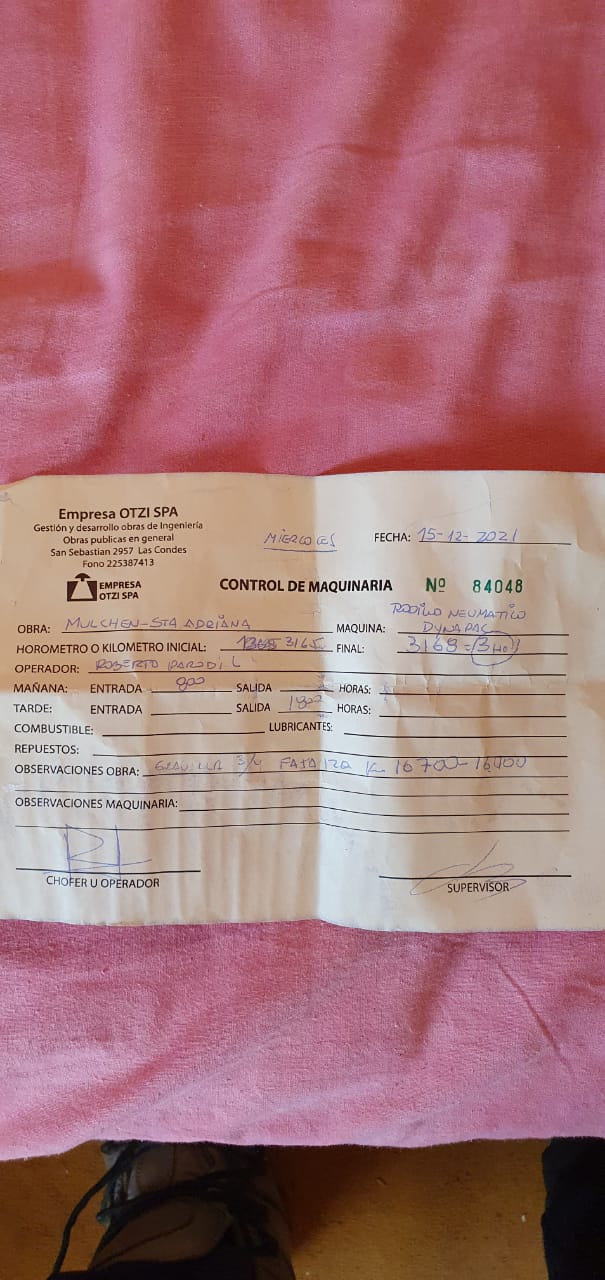 Empresa OTZI SPA
Gestión y desarrollo obras de Ingeniería
Obras publicas en general
San Sebastian 2957 Las Condes
Fono 225387413
EMPRESA
OTZI SPA
MIERCOLES
FECHA: 15-12-2021
CONTROL DE MAQUINARIA Nº 84048
OBRA: MULCHEN-STA ADRIANA
MAQUINA: RODILLO NEUMATICO
DYNAPAC
HOROMETRO O KILOMETRO INICIAL: 3165 FINAL: 3168 = 3
OPERADOR: ROBERTO PARODI L
MAÑANA: ENTRADA 800 SALIDA HORAS:
TARDE: ENTRADA SALIDA 1800 HORAS:
COMBUSTIBLE: LUBRICANTES:
REPUESTOS:
OBSERVACIONES OBRA: GRAVILLA 3/4 FAJA IZQ K 16700-16000
OBSERVACIONES MAQUINARIA:
CHOFER U OPERADOR
SUPERVISOR